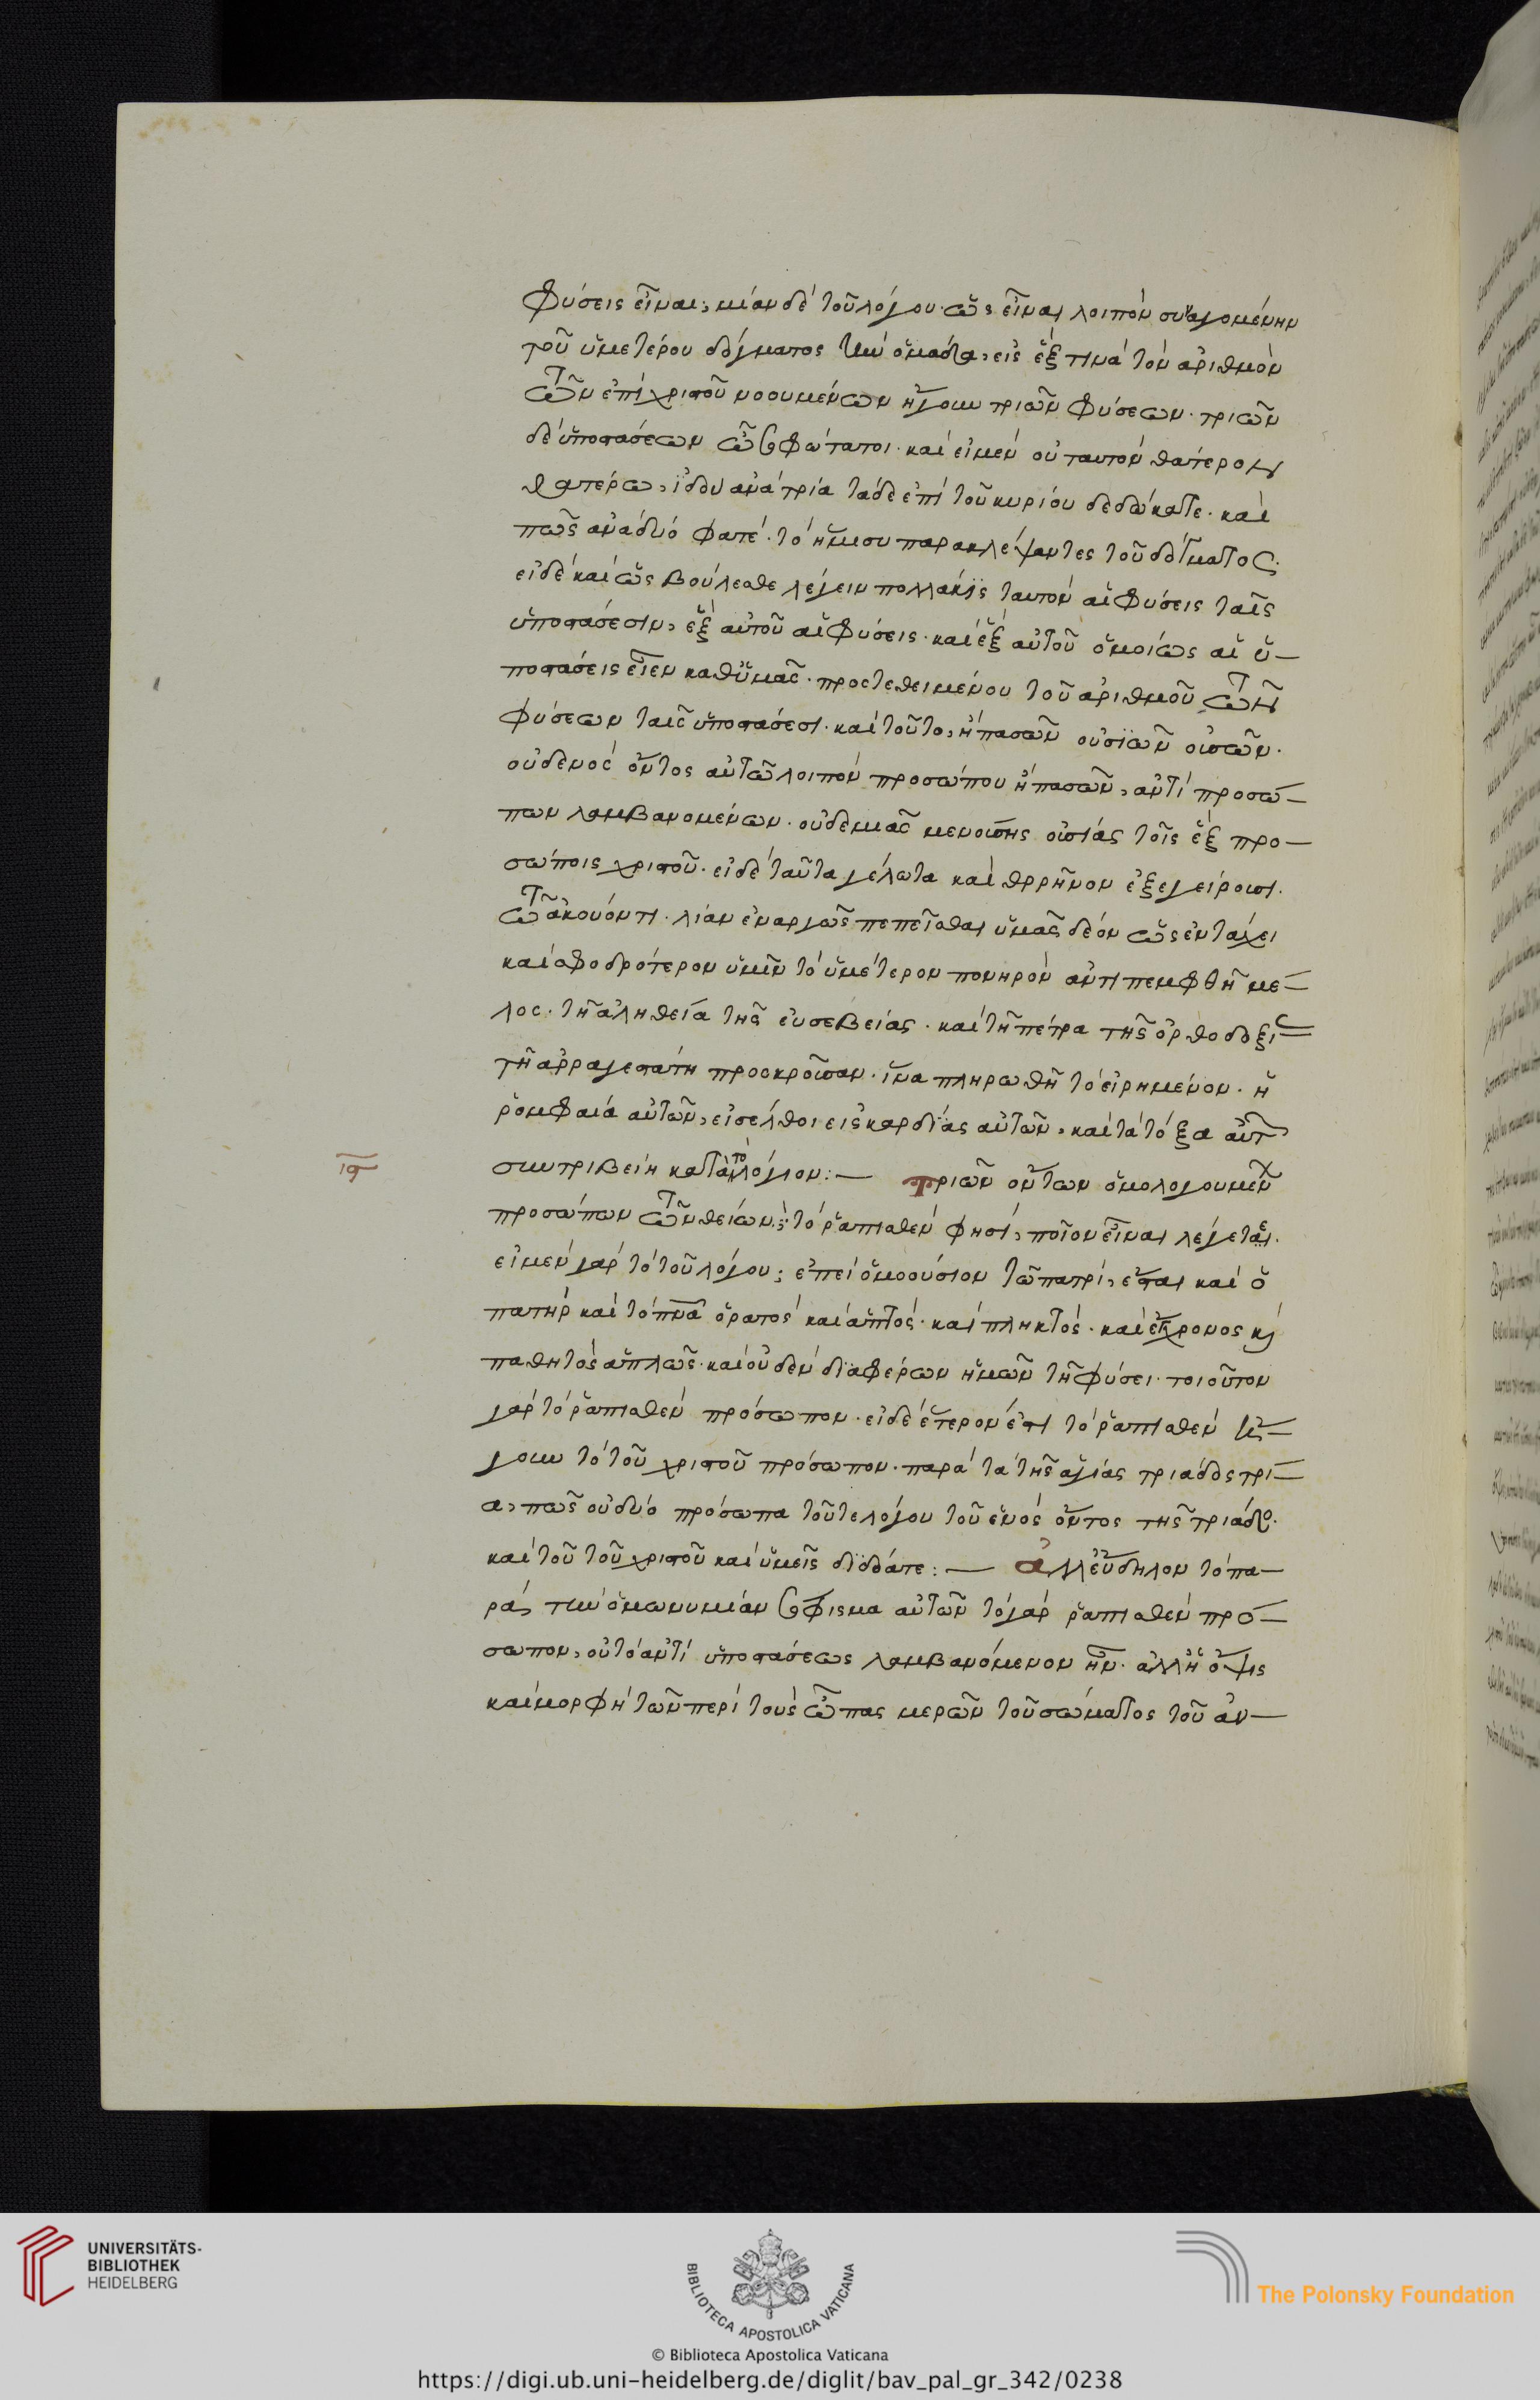 φύσεις εἶναι, μίαν δὲ τοῦ λόγου· ὡς εἶναι λοιπὸν συναγομένην
τοῦ ὑμετέρου δόγματος τὴν ὁμάδα, εἰς ἕξ τινα τὸν ἀριθμὸν
τῶν ἐπὶ χριστοῦ νοουμένων ἤγουν τριῶν φύσεων· τριῶν
δὲ ὑποστάσεων ὦ σοφώτατοι· καὶ εἰ μὲν οὐ ταυτὸν θάτερον
θατέρω, ἰδοὺ ἀνὰ τρία τάδε ἐπὶ τοῦ κυρίου δεδώκατε· καὶ
πῶς ἀνὰ δύο φατέ· τὸ ἥμισυ παρακλέψαντες τοῦ δόγματος·
εἰ δὲ καὶ ὡς βούλεσθε λέγειν πολλάκις ταυτὸν αἱ φύσεις ταῖς
ὑποστάσεσιν, ἓξ αὐτοῦ αἱ φύσεις· καὶ ἓξ αὐτοῦ ὁμοίως αἱ ὑ–
ποστάσεις εἶεν καθ' ὑμᾶς· προστεθειμένου τοῦ ἀριθμοῦ τῶν
φύσεων ταῖς ὑποστάσεσι· καὶ τοῦτο, ἢ πασῶν οὐσιῶν οὐσῶν·
οὐδενὸς ὄντος αὐτῶ λοιπὸν προσώπου ἢ πασῶν, ἀντὶ προσώ–
πων λαμβανομένων· οὐδεμιᾶς μενούσης οὐσίας τοῖς ἓξ προ–
σώποις χριστοῦ· εἰ δὲ ταῦτα γέλωτα καὶ θρῆνον ἐξεγείρουσι·
τῶ ἀκούοντι· λίαν ἐναργῶς πεπεῖσθαι ὑμᾶς δέον ὡς ἐν τάχει
καὶ σφοδρότερον ὑμῖν τὸ ὑμέτερον πονηρὸν ἀντιπεμφθῆ μέ–
λος· τῆ ἀληθεία τῆς εὐσεβείας· καὶ τῆ πέτρα τῆς ὀρθοδοξί
τῆ ἀρραγεστάτη προσκροῦσαν· ἵνα πληρωθῆ τὸ εἰρημένον· ἡ
ῥομφαία αὐτῶν, εἰσέλθοι εἰς καρδίας αὐτῶν, καὶ τὰ τόξα αὐτ
συντριβείη κατὰ τὸ λόγιον:–   Τριῶν ὄντων ὁμολογουμέν
προσώπων τῶν θείων· τὸ ῥαπισθέν φησι, ποῖον εἶναι λέγεται·
εἰ μὲν γὰρ τὸ τοῦ λόγου· ἐπεὶ ὁμοούσιον τῶ πατρί, ἔσται καὶ ὁ
πατὴρ καὶ τὸ πνα ὁρατὸς καὶ ἁπτός· καὶ πληκτός· καὶ ἔγχρονος κ
παθητὸς ἁπλῶς· καὶ οὐδὲν διαφέρων ἡμῶν τῆ φύσει· τοιοῦτον
γὰρ τὸ ῥαπισθὲν πρόσωπον· εἰ δὲ ἕτερόν ἐστι τὸ ῥαπισθὲν ἤ–
γουν τὸ τοῦ χριστοῦ πρόσωπον· παρὰ τὰ τῆς ἁγίας τριάδος τρί–
α, πῶς οὐ δύο πρόσωπα τοῦ τε λόγου τοῦ ἑνὸς ὄντος τῆς τριάδο·
καὶ τοῦ τοῦ χριστοῦ καὶ ὑμεῖς δίδοατε:–   ἀλλ' εὔδηλον τὸ πα–
ρὰ, τὴν ὁμωνυμίαν σόφισμα αὐτῶν τὸ γὰρ ῥαπισθὲν πρό–
σωπον, οὐ τὸ ἀντὶ ὑποστάσεως λαμβανόμενον ἦν· ἀλλ' ἡ ὄψις
καὶ μορφὴ τῶν περὶ τοὺς ὦπας μερῶν τοῦ σώματος τοῦ ἀν–
UNIVERSITÄTS-
BIBLIOTHEK
HEIDELBERG
BIBLIOTECA APOSTOLICA VATICANA
The Polonsky Foundation
© Biblioteca Apostolica Vaticana
https://digi.ub.uni-heidelberg.de/diglit/bav_pal_gr_342/0238